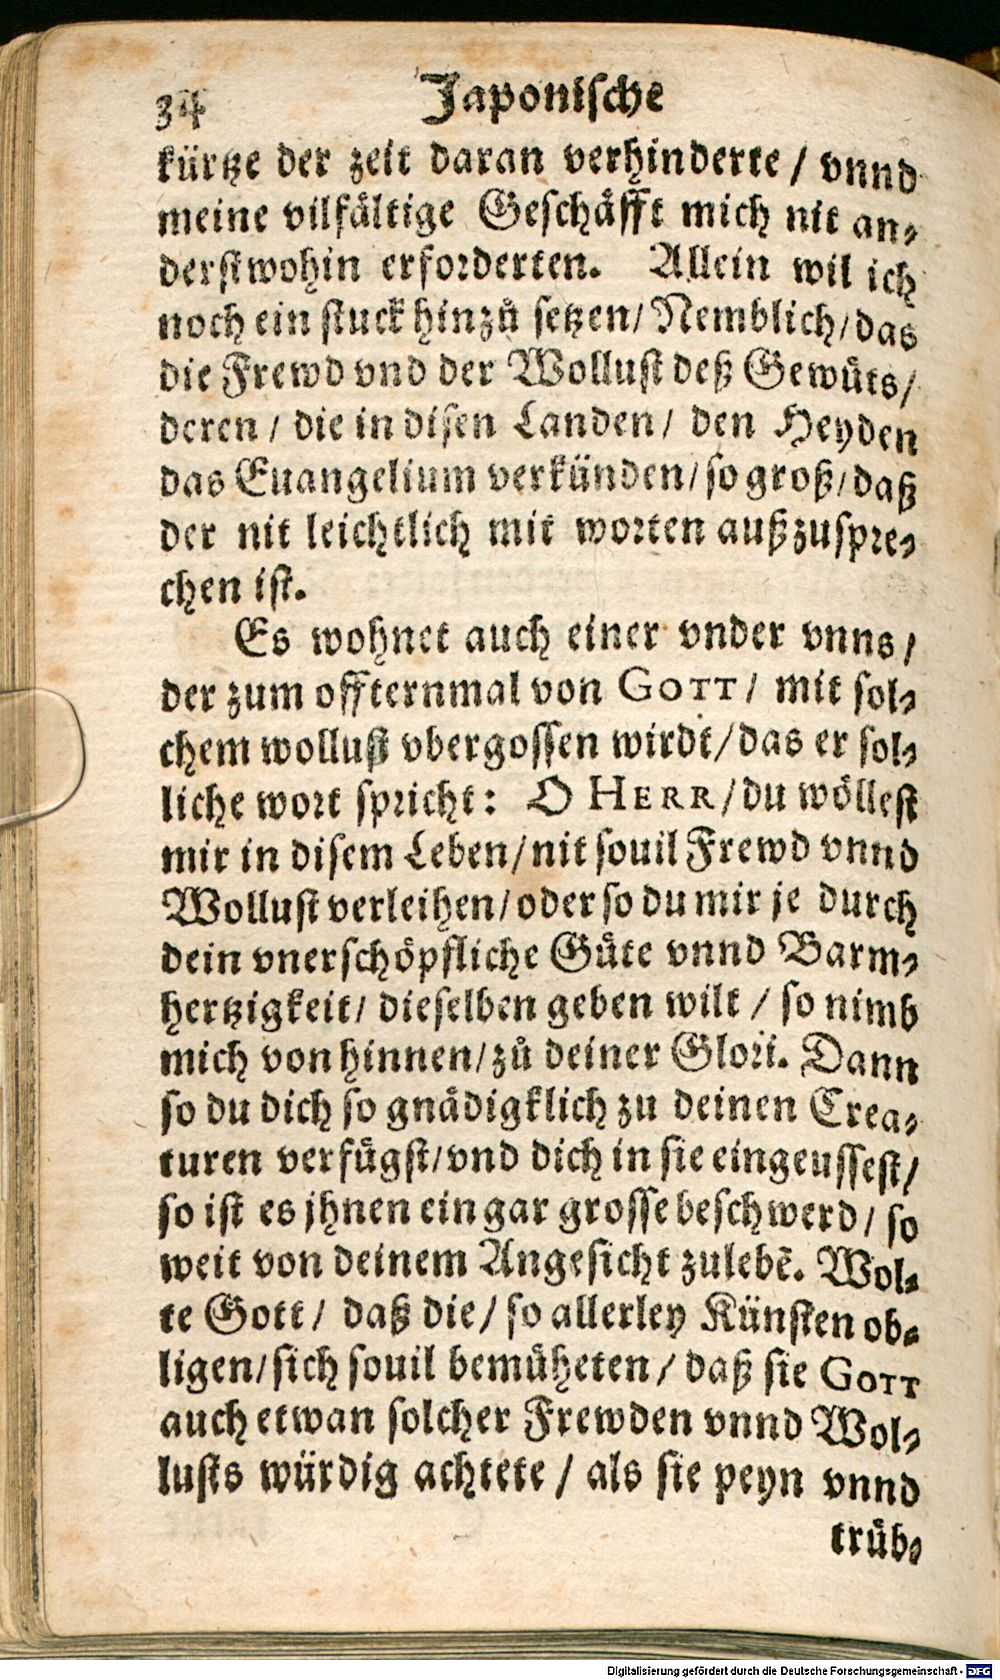 34 Japonische
kürtze der zeit daran verhinderte / vnnd
meine vilfältige Geschåfft mich nit an-
derstwohin erforderten. Allein wil ich
noch ein stuck hinzů setzen/ Nemblich/ das
die Frewd vnd der Wollust deß Gemůts/
deren / die in disen Landen / den Heyden
das Euangelium verkünden/ so groß/ daß
der nit leichtlich mit worten außzuspre-
chen ist.
Es wohnet auch einer vnder vnns /
der zum offternmal von GOTT / mit sol-
chem wollust vbergossen wirdt/ das er sol-
liche wort spricht: O HERR/ du wöllest
mir in disem Leben/ nit souil Frewd vnnd
Wollust verleihen/ oder so du mir je durch
dein vnerschöpfliche Gůte vnnd Barm-
hertzigkeit/ dieselben geben wilt / so nimb
mich von hinnen/ zů deiner Glori. Dann
so du dich so gnådigklich zu deinen Crea-
turen verfůgst/ vnd dich in sie eingeussest/
so ist es jhnen ein gar grosse beschwerd / so
weit von deinem Angesicht zulebẽ. Wol-
te Gott / daß die / so allerley Künsten ob-
ligen/ sich souil bemůheten / daß sie GOTT
auch etwan solcher Frewden vnnd Wol-
lusts würdig achtete / als sie peyn vnnd
trüb-
Digitalisierung gefördert durch die Deutsche Forschungsgemeinschaft - DFG